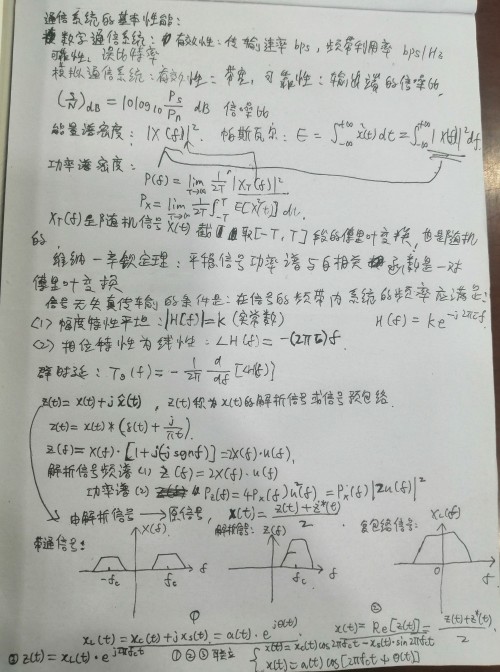 通信系统的基本性能:
数字通信系统: 有效性: 传输速率 bps, 频带利用率 bps/Hz
可靠性: 误比特率
模拟通信系统: 有效性: 带宽, 可靠性: 输出端的信噪比
(S/N)dB = 10log10 Ps/Pn dB 信噪比
能量谱密度: |X(f)|² 帕斯瓦尔: E = ∫_{-∞}^{+∞} x²(t)dt = ∫_{-∞}^{+∞} |X(f)|² df
功率谱密度:
P(f) = lim_{T→∞} 1/2T |X_T(f)|²
Px = lim_{T→∞} 1/2T ∫_{-T}^{T} E[X²(t)] dt.
X_T(f)是随机信号X(t)截取[-T, T]段的傅里叶变换, 也是随机
的,
维纳-辛钦定理: 平稳信号功率谱与自相关函数是一对
傅里叶变换
信号无失真传输的条件是: 在信号的频带内系统的频率应满足:
(1) 幅度特性平坦: |H(f)| = k (实常数) H(f) = ke^{-j2πτf}
(2) 相位特性为线性: ∠H(f) = -(2πτ)f.
群时延: T_G(f) = - 1/2π d/df [∠H(f)]
z(t) = x(t) + jx̂(t), z(t)称为x(t)的解析信号或信号预包络.
z(t) = x(t) * (δ(t) + j/πt)
Z(f) = X(f)·[1+j(-jsgnf)] = 2X(f)·u(f)
解析信号频谱 (1) Z(f) = 2X(f)·u(f)
功率谱 (2) Pz(f) = 4Px(f)u²(f) = Px(f)|2u(f)|²
由解析信号 → 原信号, x(t) = z(t)+z*(t) / 2
带通信号: X(f) 解析信号: Z(f) 复包络信号: X_L(f)
-fc fc f fc f 0 f
①
②
x_L(t) = x_c(t) + jx_s(t) = a(t)·e^{jθ(t)} x(t) = Re[z(t)] = z(t)+z*(t) / 2
③ z(t) = x_L(t)·e^{j2πfct} ①②③ { x(t) = x_c(t)cos2πfct - x_s(t)·sin2πfct
x(t) = a(t)cos[2πfct + θ(t)]